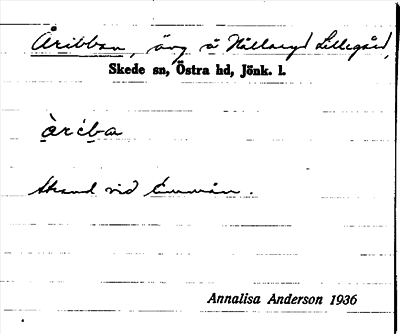 Åribban, äng å Hällaryd Lillegård,
Skede sn, Östra hd, Jönk. l.
àrib̀a
Strand vid Emmån.
Annalisa Anderson 1936